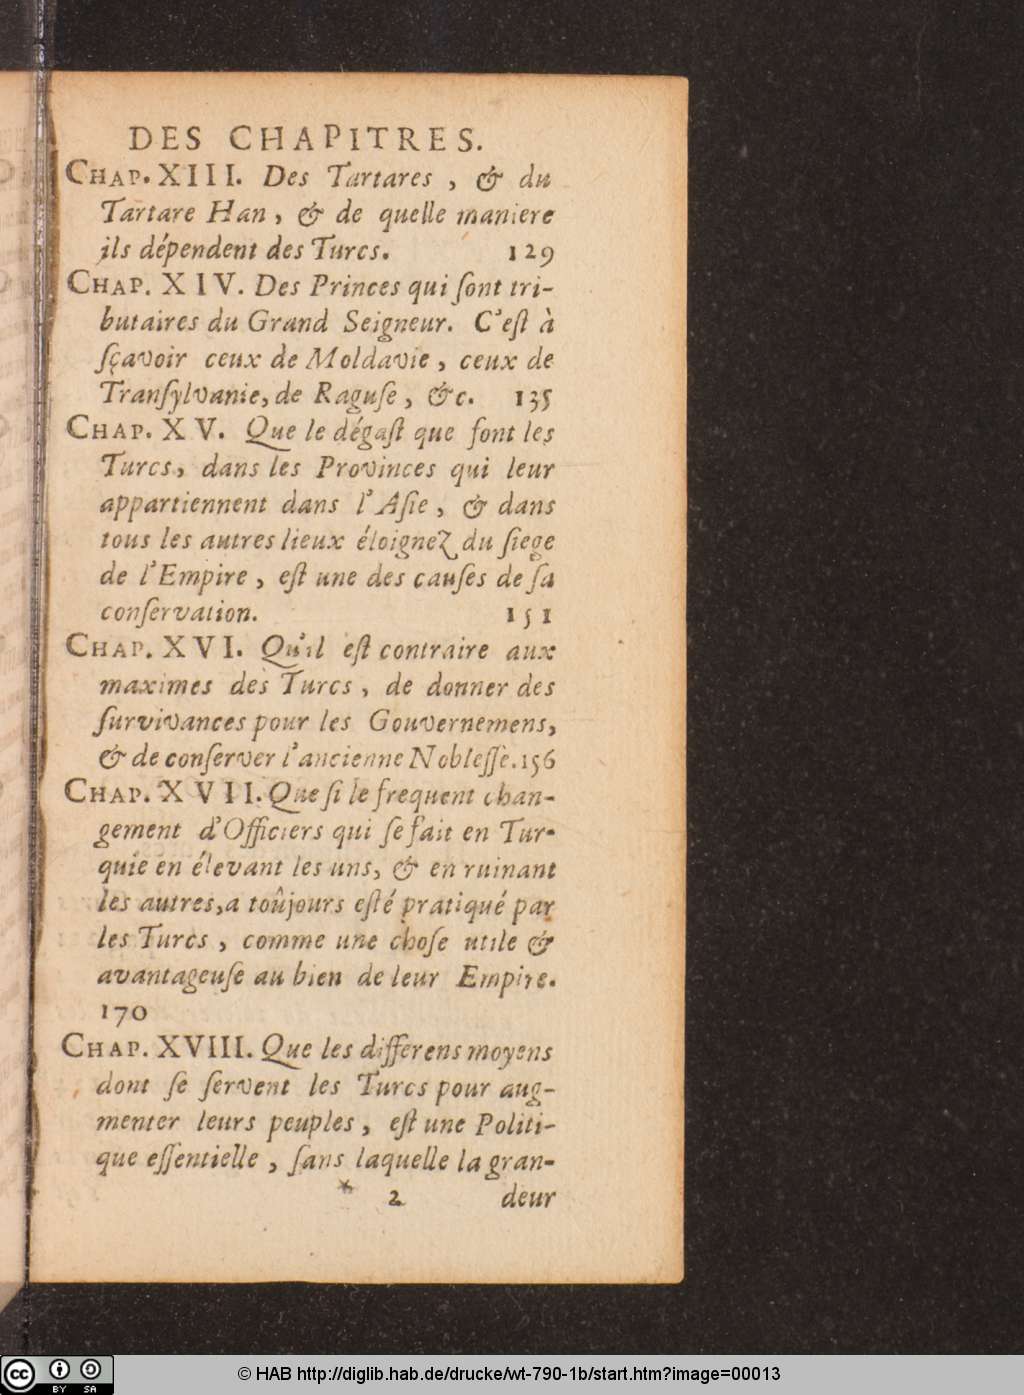 DES CHAPITRES.
CHAP. XIII. Des Tartares, & du
Tartare Han, & de quelle maniere
ils dépendent des Turcs. 129
CHAP. XIV. Des Princes qui ſont tri-
butaires du Grand Seigneur. C'eſt à
ſçavoir ceux de Moldavie, ceux de
Tranſylvanie, de Raguſe, &c. 135
CHAP. XV. Que le dégaſt que font les
Turcs, dans les Provinces qui leur
appartiennent dans l'Aſie, & dans
tous les autres lieux éloignez du ſiege
de l'Empire, eſt une des cauſes de ſa
conſervation. 151
CHAP. XVI. Qu'il eſt contraire aux
maximes des Turcs, de donner des
ſurvivances pour les Gouvernemens,
& de conſerver l'ancienne Nobleſſe. 156
CHAP. XVII. Que ſi le frequent chan-
gement d'Officiers qui ſe fait en Tur-
quie en élevant les uns, & en ruinant
les autres, a toûjours eſté pratiqué par
les Turcs, comme une choſe utile &
avantageuſe au bien de leur Empire.
170
CHAP. XVIII. Que les differens moyens
dont ſe ſervent les Turcs pour aug-
menter leurs peuples, eſt une Politi-
que eſſentielle, ſans laquelle la gran-
* 2 deur
cc BY SA
© HAB http://diglib.hab.de/drucke/wt-790-1b/start.htm?image=00013